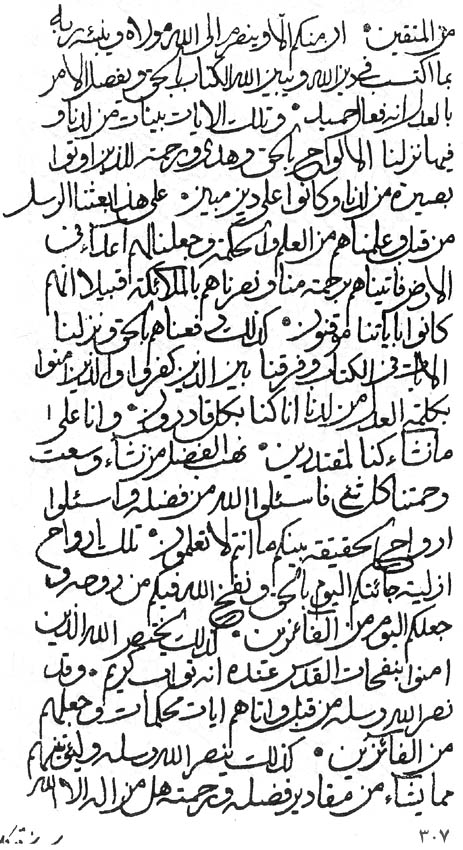 من المتقين * ان منكم الا وينصر الى الله مولاه وينبئه ربه
بما اكتسب في دين الله ويبين الله الكتاب بالحق ويفصل الامر
بالعدل انه تعال حميد * وتلك الايات بينات من لدنا و
فيما نزلنا الالواح بالحق وهدى ورحمته للذين اوتوا
بصيرة من لدنا وكانوا على دين مبين * على هذا بعثنا الرسل
من قبل وعلمناهم من العلم والحكمة وجعلنا لهم اعداء في
الارض فاتيناهم برحمته منا ونصرناهم بالملائكة قبيلا انهم
كانوا باياتنا موقنون * كذلك رفعناهم بالحق ونزلنا
الايات في الكتاب وفرقنا بين الذين كفروا والذين امنوا
بكلمة العدل من لدنا انا كنا بكل قادرون * وانا على
ما نشاء كنا لمقتدرين * نهب الفضل من نشاء وسعت
رحمتنا كل شئ فاسئلوا الله من فضله واسئلوا
ارواح الحقيقة بينكم ما انتم لا تعلمون * تلك ارواح
ازلية جائتكم اليوم بالحق ونفخ الله فيكم من روحه و
جعلكم اليوم من الفائزين * كذلك يختص الله الذين
امنوا بنفحات القدس عنده انه تواب كريم * وقد
نصر الله رسله من قبل واتاهم ايات محكمات وجعلهم
من الفائزين * كذلك ينصر الله رسله
مما يشاء من مقادير فضله ورحمته هل من اله الا الله
٣٠٧